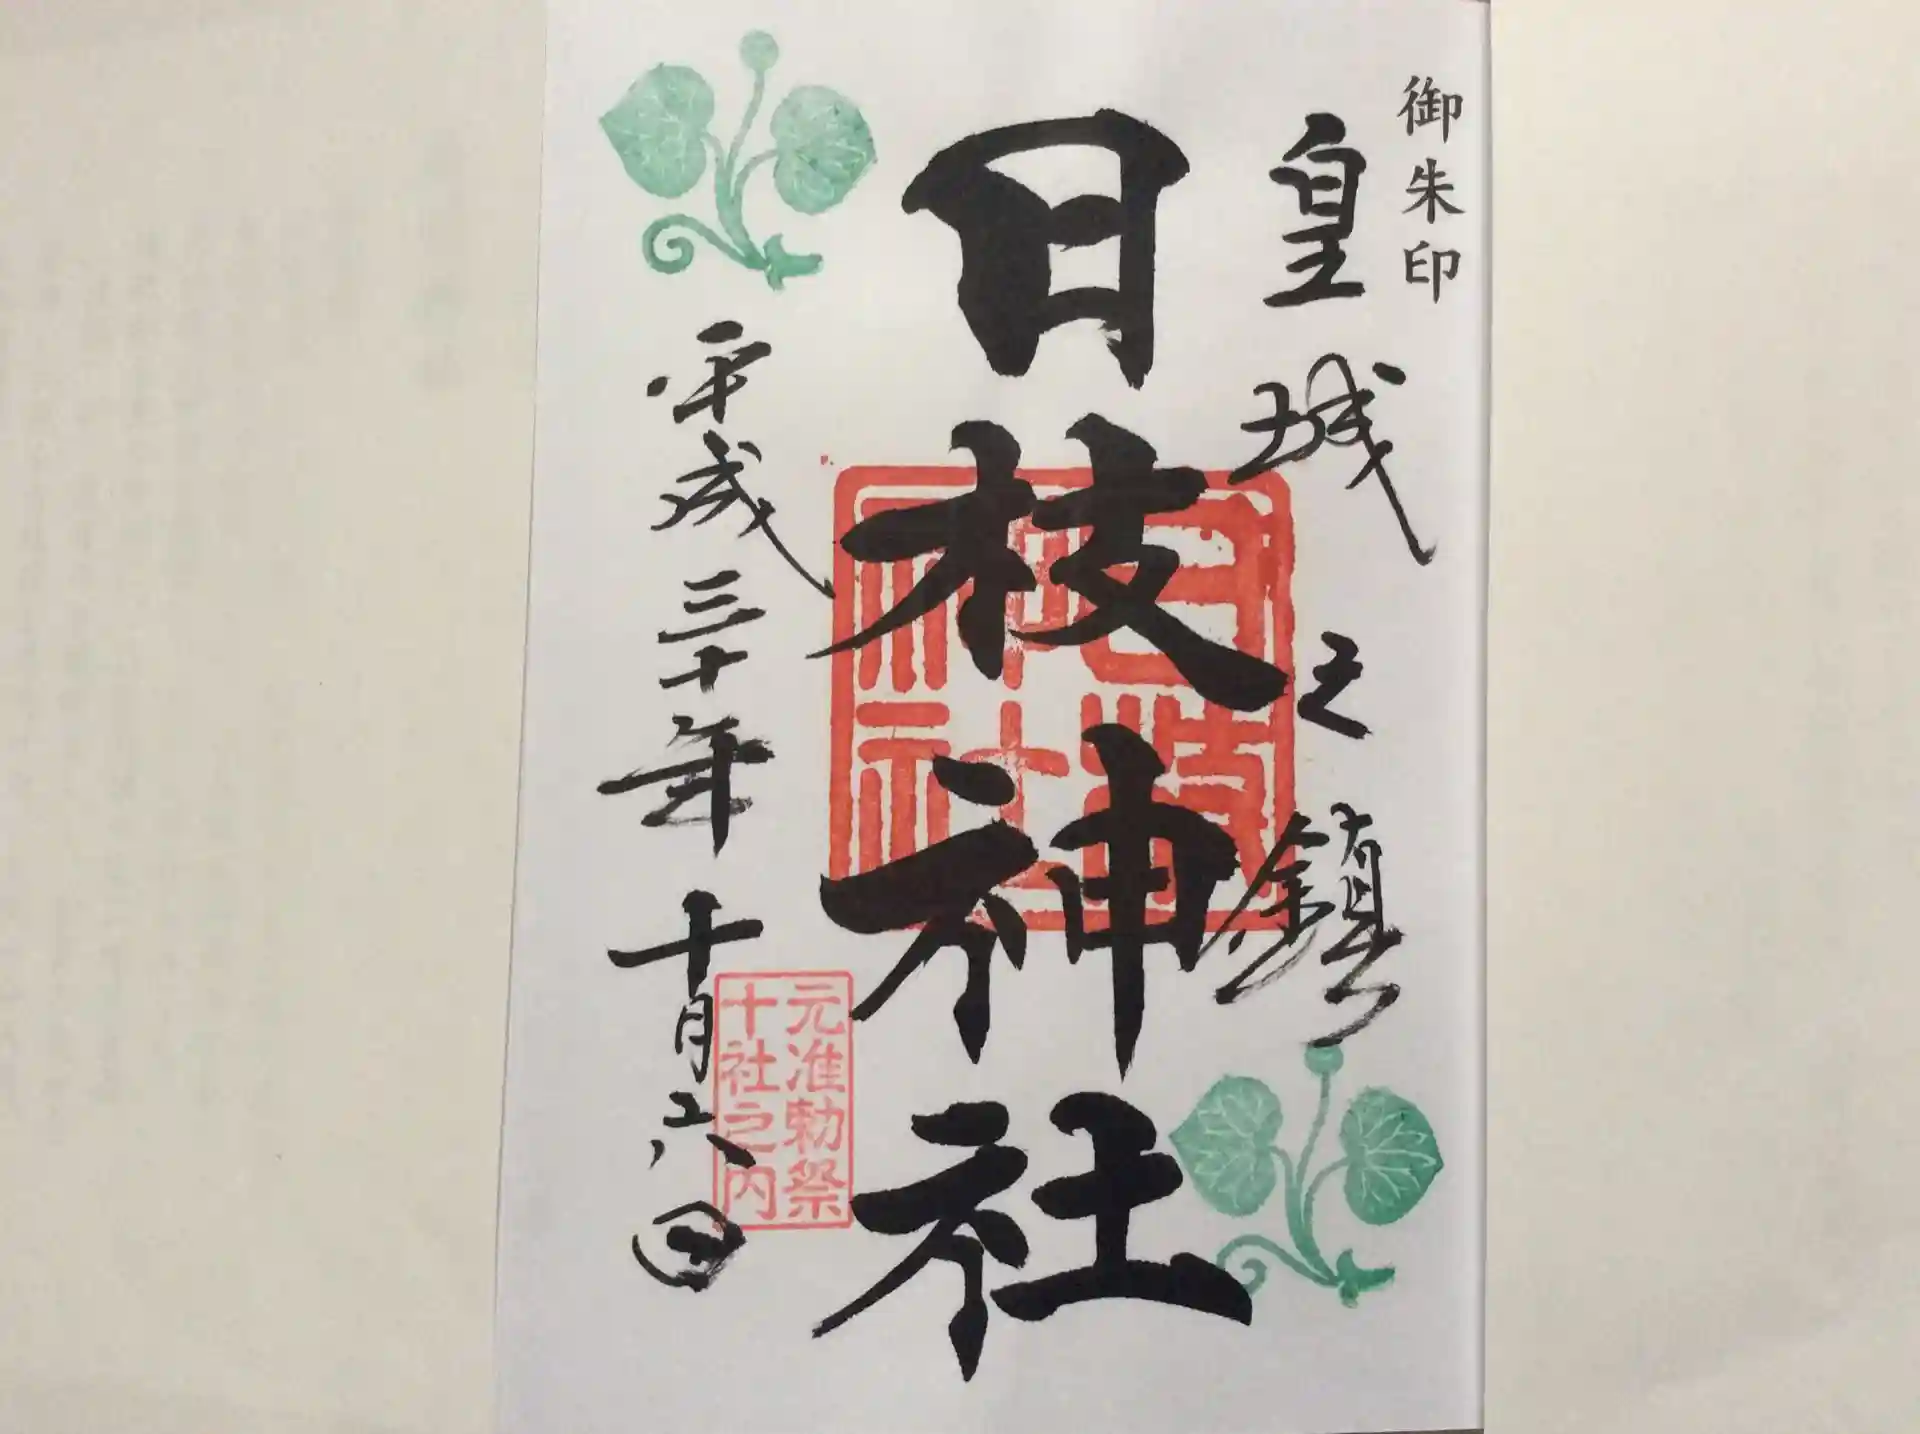 御朱印
皇城之鎮
日枝神社
日枝
神社
元准勅祭
十社之内
平成三十年十月六日